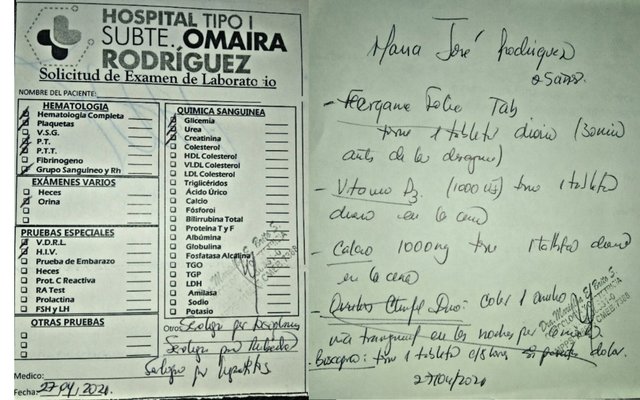 HOSPITAL TIPO I
SUBTE. OMAIRA
RODRÍGUEZ
Solicitud de Examen de Laboratorio
NOMBRE DEL PACIENTE:
HEMATOLOGIA
Hematologia Completa
Plaquetas
V.S.G.
P.T.
P.T.T.
Fibrinogeno
Grupo Sanguineo y Rh
EXÁMENES VARIOS
Heces
Orina
PRUEBAS ESPECIALES
V.D.R.L.
H.I.V.
Prueba de Embarazo
Heces
Prot. C Reactiva
RA Test
Prolactina
FSH y LH
OTRAS PRUEBAS
Medico:
Fecha: 27/04/2021.
QUIMICA SANGUINEA
Glicemia
Urea
Creatinina
Colesterol
HDL Colesterol
VLDL Colesterol
LDL Colesterol
Triglicéridos
Ácido Úrico
Calcio
Fósforoi
Bilirrubina Total
Proteina T y F
Albúmina
Globulina
Fosfatasa Alcalina
TGO
TGP
LDH
Amilasa
Sodio
Potasio
Otros Serologia por
Serologia para Rubeola
Serologia por hepatitis
Maria José Rodriguez
- Folic Tab
tome 1 tableta diario (30min
antes de
- Vitamina D3 (1000 UI) tome 1 tableta
diario en la cena
- Calcio 1000mg tome 1 tableta diario
en la cena
- Duo: Colocar 1 ovulo
via transvaginal en las noches por
tome 1 tableta c/8 horas dolor.
27/04/2021